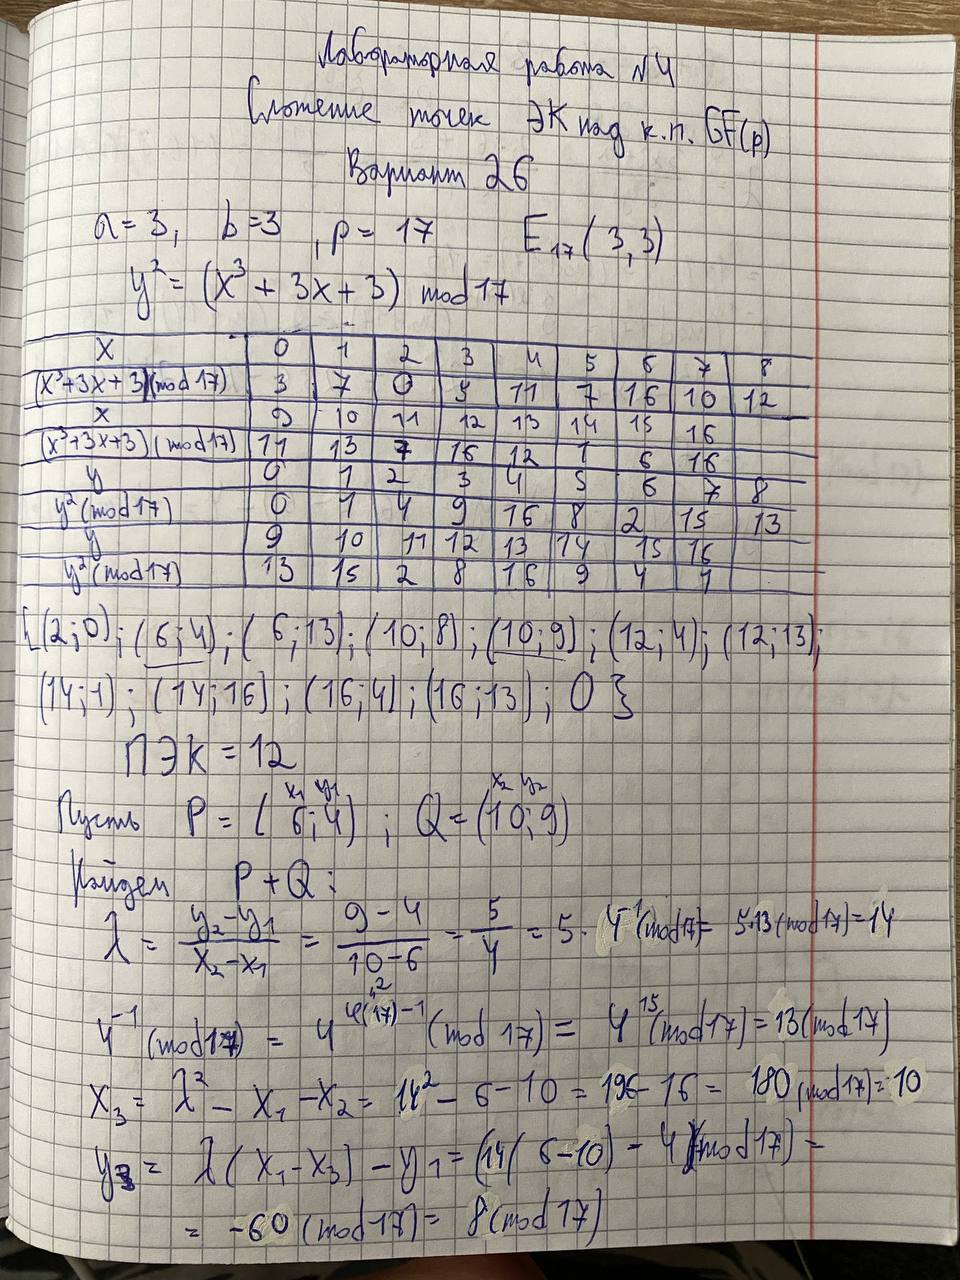 Лабораторная работа №4
Сложение точек ЭК над к.п. GF(p)
Вариант 26
a=3, b=3, p=17 E₁₇(3,3)
y² = (x³ + 3x + 3) mod 17
x 0 1 2 3 4 5 6 7 8
(x³+3x+3)(mod 17) 3 7 0 5 11 7 16 10 12
x 9 10 11 12 13 14 15 16
(x³+3x+3)(mod 17) 11 13 7 16 12 1 6 16
y 0 1 2 3 4 5 6 7 8
y²(mod 17) 0 1 4 9 16 8 2 15 13
y 9 10 11 12 13 14 15 16
y²(mod 17) 13 15 2 8 16 9 4 1
{(2;0); (6;4); (6;13); (10;8); (10;9); (12;4); (12;13);
(14;1); (14;16); (16;4); (16;13); O}
ПЭК = 12
x₁ y₁ x₂ y₂
Пусть P = (6;4); Q = (10;9)
Найдем P+Q:
λ = (y₂-y₁)/(x₂-x₁) = (9-4)/(10-6) = 5/4 = 5·4⁻¹(mod 17) = 5·13(mod 17) = 14
4⁻¹(mod 17) = 4^(φ(17)-1)(mod 17) = 4¹⁵(mod 17) = 13(mod 17)
x₃ = λ² - x₁ - x₂ = 14² - 6 - 10 = 196 - 16 = 180(mod 17) = 10
y₃ = λ(x₁-x₃) - y₁ = (14(6-10) - 4)(mod 17) =
= -60(mod 17) = 8(mod 17)